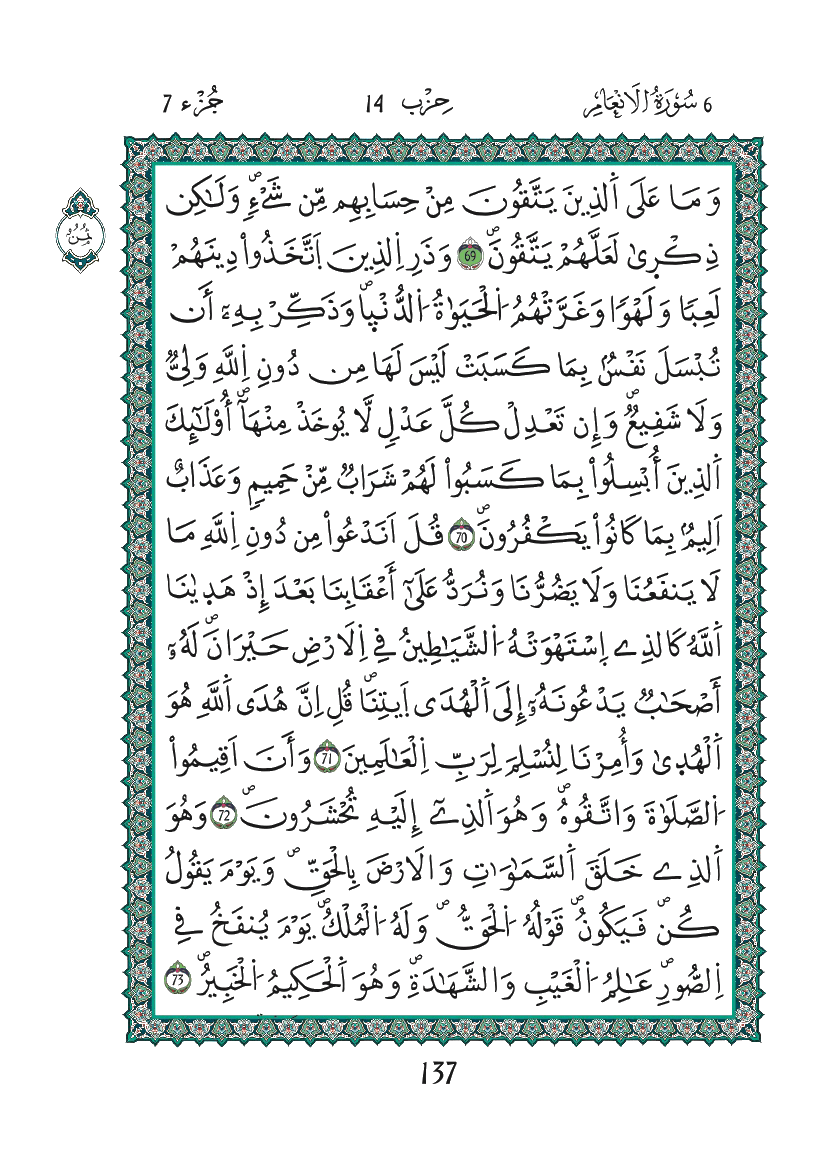 6 سُورَةُ الَانْعَامِ حِزْب 14 جُزْء 7
وَمَا عَلَى اَلذِينَ يَتَّقُونَ مِنْ حِسَابِهِم مِّن شَےْءٖۖ وَلَٰكِن
ثُمُن
ذِكْر۪يٰ لَعَلَّهُمْ يَتَّقُونَۖ 69 وَذَرِ اِلذِينَ اَتَّخَذُواْ دِينَهُمْ
لَعِبًا وَلَهْوًا وَغَرَّتْهُمُ اُلْحَيَوٰةُ اُلدُّنْي۪اۖ وَذَكِّرْ بِهِۦٓ أَن
تُبْسَلَ نَفْسُۢ بِمَا كَسَبَتْ لَيْسَ لَهَا مِن دُونِ اِللَّهِ وَلِيّٞ
وَلَا شَفِيعٞۖ وَإِن تَعْدِلْ كُلَّ عَدْلٖ لَّا يُوخَذْ مِنْهَآۖ أُوْلَٰٓئِكَ
اَلذِينَ أُبْسِلُواْ بِمَا كَسَبُواْ لَهُمْ شَرَابٞ مِّنْ حَمِيمٖ وَعَذَابٌ
اَلِيمُۢ بِمَا كَانُواْ يَكْفُرُونَۖ 70 قُلَ اَنَدْعُواْ مِن دُونِ اِللَّهِ مَا
لَا يَنفَعُنَا وَلَا يَضُرُّنَا وَنُرَدُّ عَلَىٰٓ أَعْقَابِنَا بَعْدَ إِذْ هَد۪يٰنَا
اَللَّهُ كَالذِے اِسْتَهْوَتْهُ اُلشَّيَٰطِينُ فِے اِلَارْضِ حَيْرَانَۖ لَهُۥٓ
أَصْحَٰبٞ يَدْعُونَهُۥٓ إِلَى اَلْهُدَى اَيتِنَاۖ قُلِ اِنَّ هُدَى اَللَّهِ هُوَ
اَلْهُد۪يٰ وَأُمِرْنَا لِنُسْلِمَ لِرَبِّ اِلْعَٰلَمِينَ 71 وَأَنَ اَقِيمُواْ
اُلصَّلَوٰةَ وَاتَّقُوهُۖ وَهُوَ اَلذِےٓ إِلَيْهِ تُحْشَرُونَۖ 72 وَهُوَ
اَلذِے خَلَقَ اَلسَّمَٰوَٰتِ وَالَارْضَ بِالْحَقِّۖ وَيَوْمَ يَقُولُ
كُنۖ فَيَكُونُۖ قَوْلُهُ اُلْحَقُّۖ وَلَهُ اُلْمُلْكُۖ يَوْمَ يُنفَخُ فِے
اِلصُّورِۖ عَٰلِمُ اُلْغَيْبِ وَالشَّهَٰدَةِۖ وَهُوَ اَلْحَكِيمُ اُلْخَبِيرُۖ 73
137